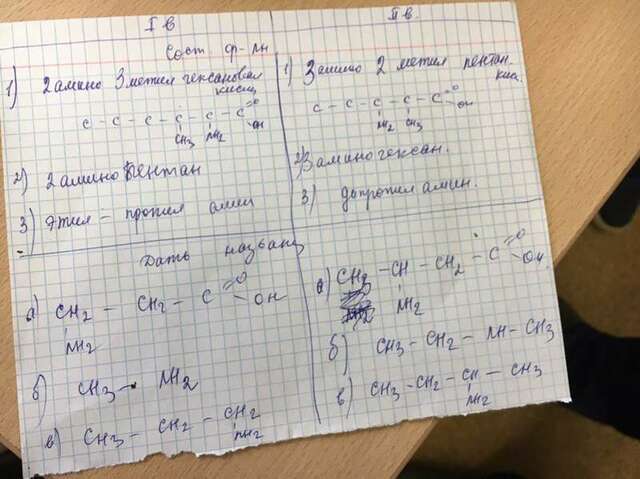 I в
II в.
Сост. ф-лы
1) 2 амино 3 метил гексановая
кислц
C - C - C - C - C - C =O
CH3 NH2 OH
2) 2 амино пентан
3) Этил - пропил амин
1) 3 амино 2 метил пентан.
кис.
C - C - C - C - C =O
NH2 CH3 OH
2) 3 амино гексан.
3) дипропил амин.
Дать назван
а) CH2 - CH2 - C =O
OH
NH2
б) CH3 - NH2
в) CH3 - CH2 - CH2
NH2
а) CH3 - CH - CH2 - C =O
OH
NH2
б) CH3 - CH2 - NH - CH3
в) CH3 - CH2 - CH - CH3
NH2